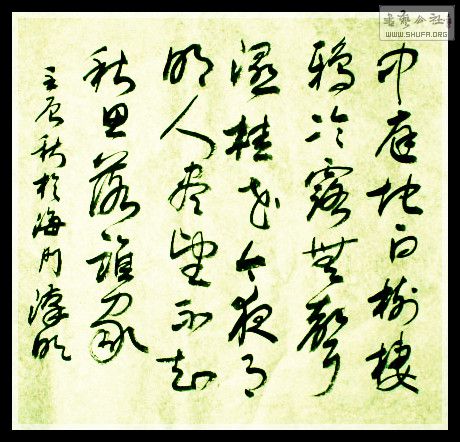 中庭地白樹棲
鴉冷露無聲
濕桂花今夜月
明人盡望不知
秋思落誰家
壬辰秋於海門
書藝公社
WWW.SHUFA.ORG